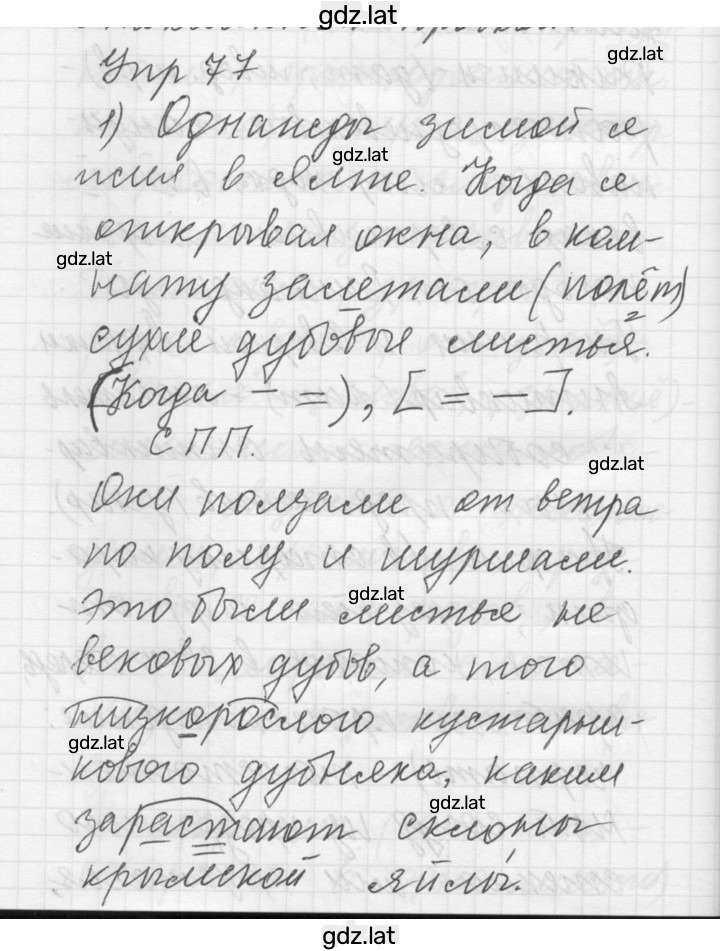 gdz.lat
gdz.lat
Упр 77
1) Однажды зимой я
gdz.lat
жил в Ялте. Когда я
открывал окна, в ком-
gdz.lat
нату залетали (полёт)
сухие дубовые листья.
(Когда — =), [= —].
СПП.
gdz.lat
Они ползали от ветра
по полу и шуршали.
gdz.lat
Это были листья не
вековых дубов, а того
низкорослого кустарни-
gdz.lat
кового дубняка, каким
gdz.lat
зарастают склоны
крымской яйлы.
gdz.lat